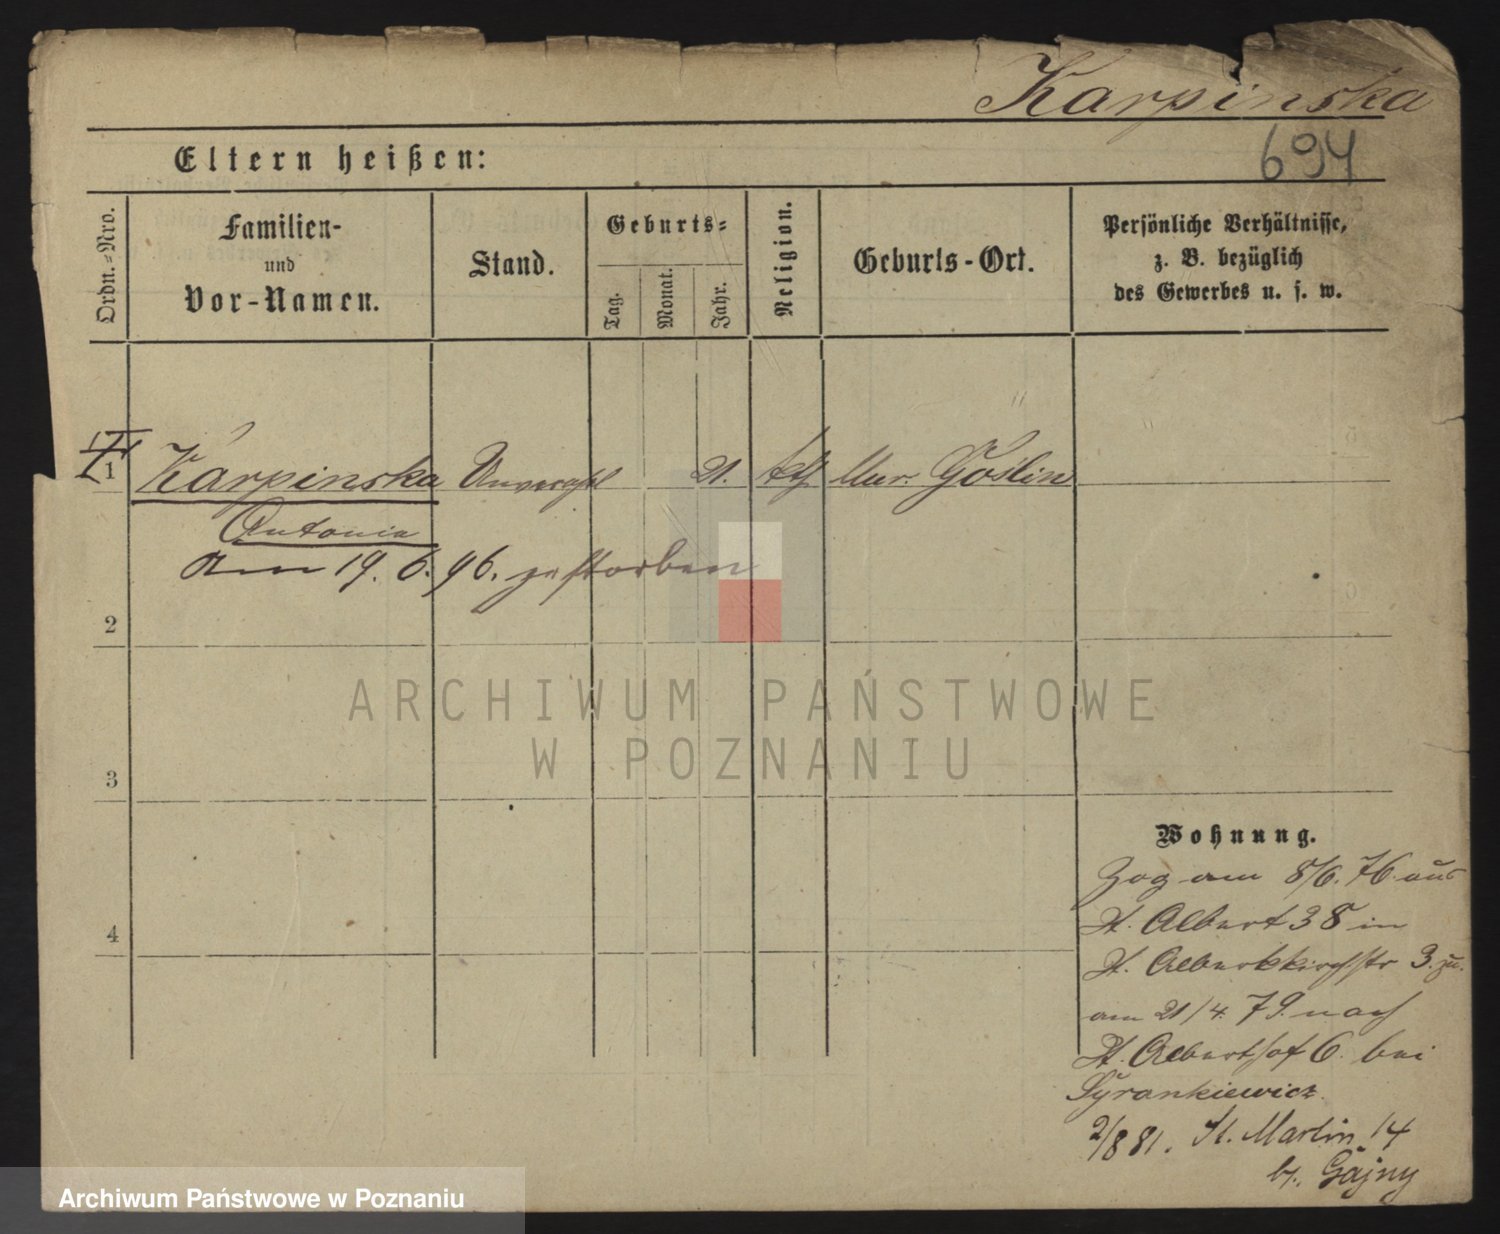 Karpinska
694
Eltern heißen:
Ordn.-Nro.
Familien-
und
Vor-Namen.
Stand.
Geburts-
Tag.
Monat.
Jahr.
Religion.
Geburts-Ort.
Persönliche Verhältnisse,
z. B. bezüglich
des Gewerbes u. s. w.
1 Karpinska Unverehl 21. kth Mur. Goslin
Antonia
Am 19. 6. 96. gestorben
2
3
4
ARCHIWUM PAŃSTWOWE
W POZNANIU
Wohnung.
Zog am 8/6. 76. aus
St. Albert 38 in
St. Albertkirchstr 3. zu.
am 21/4. 79. nach
St. Alberthof 6. bei
Syrankiewicz
2/8 81. St. Martin 14
b. Gajny
Archiwum Państwowe w Poznaniu